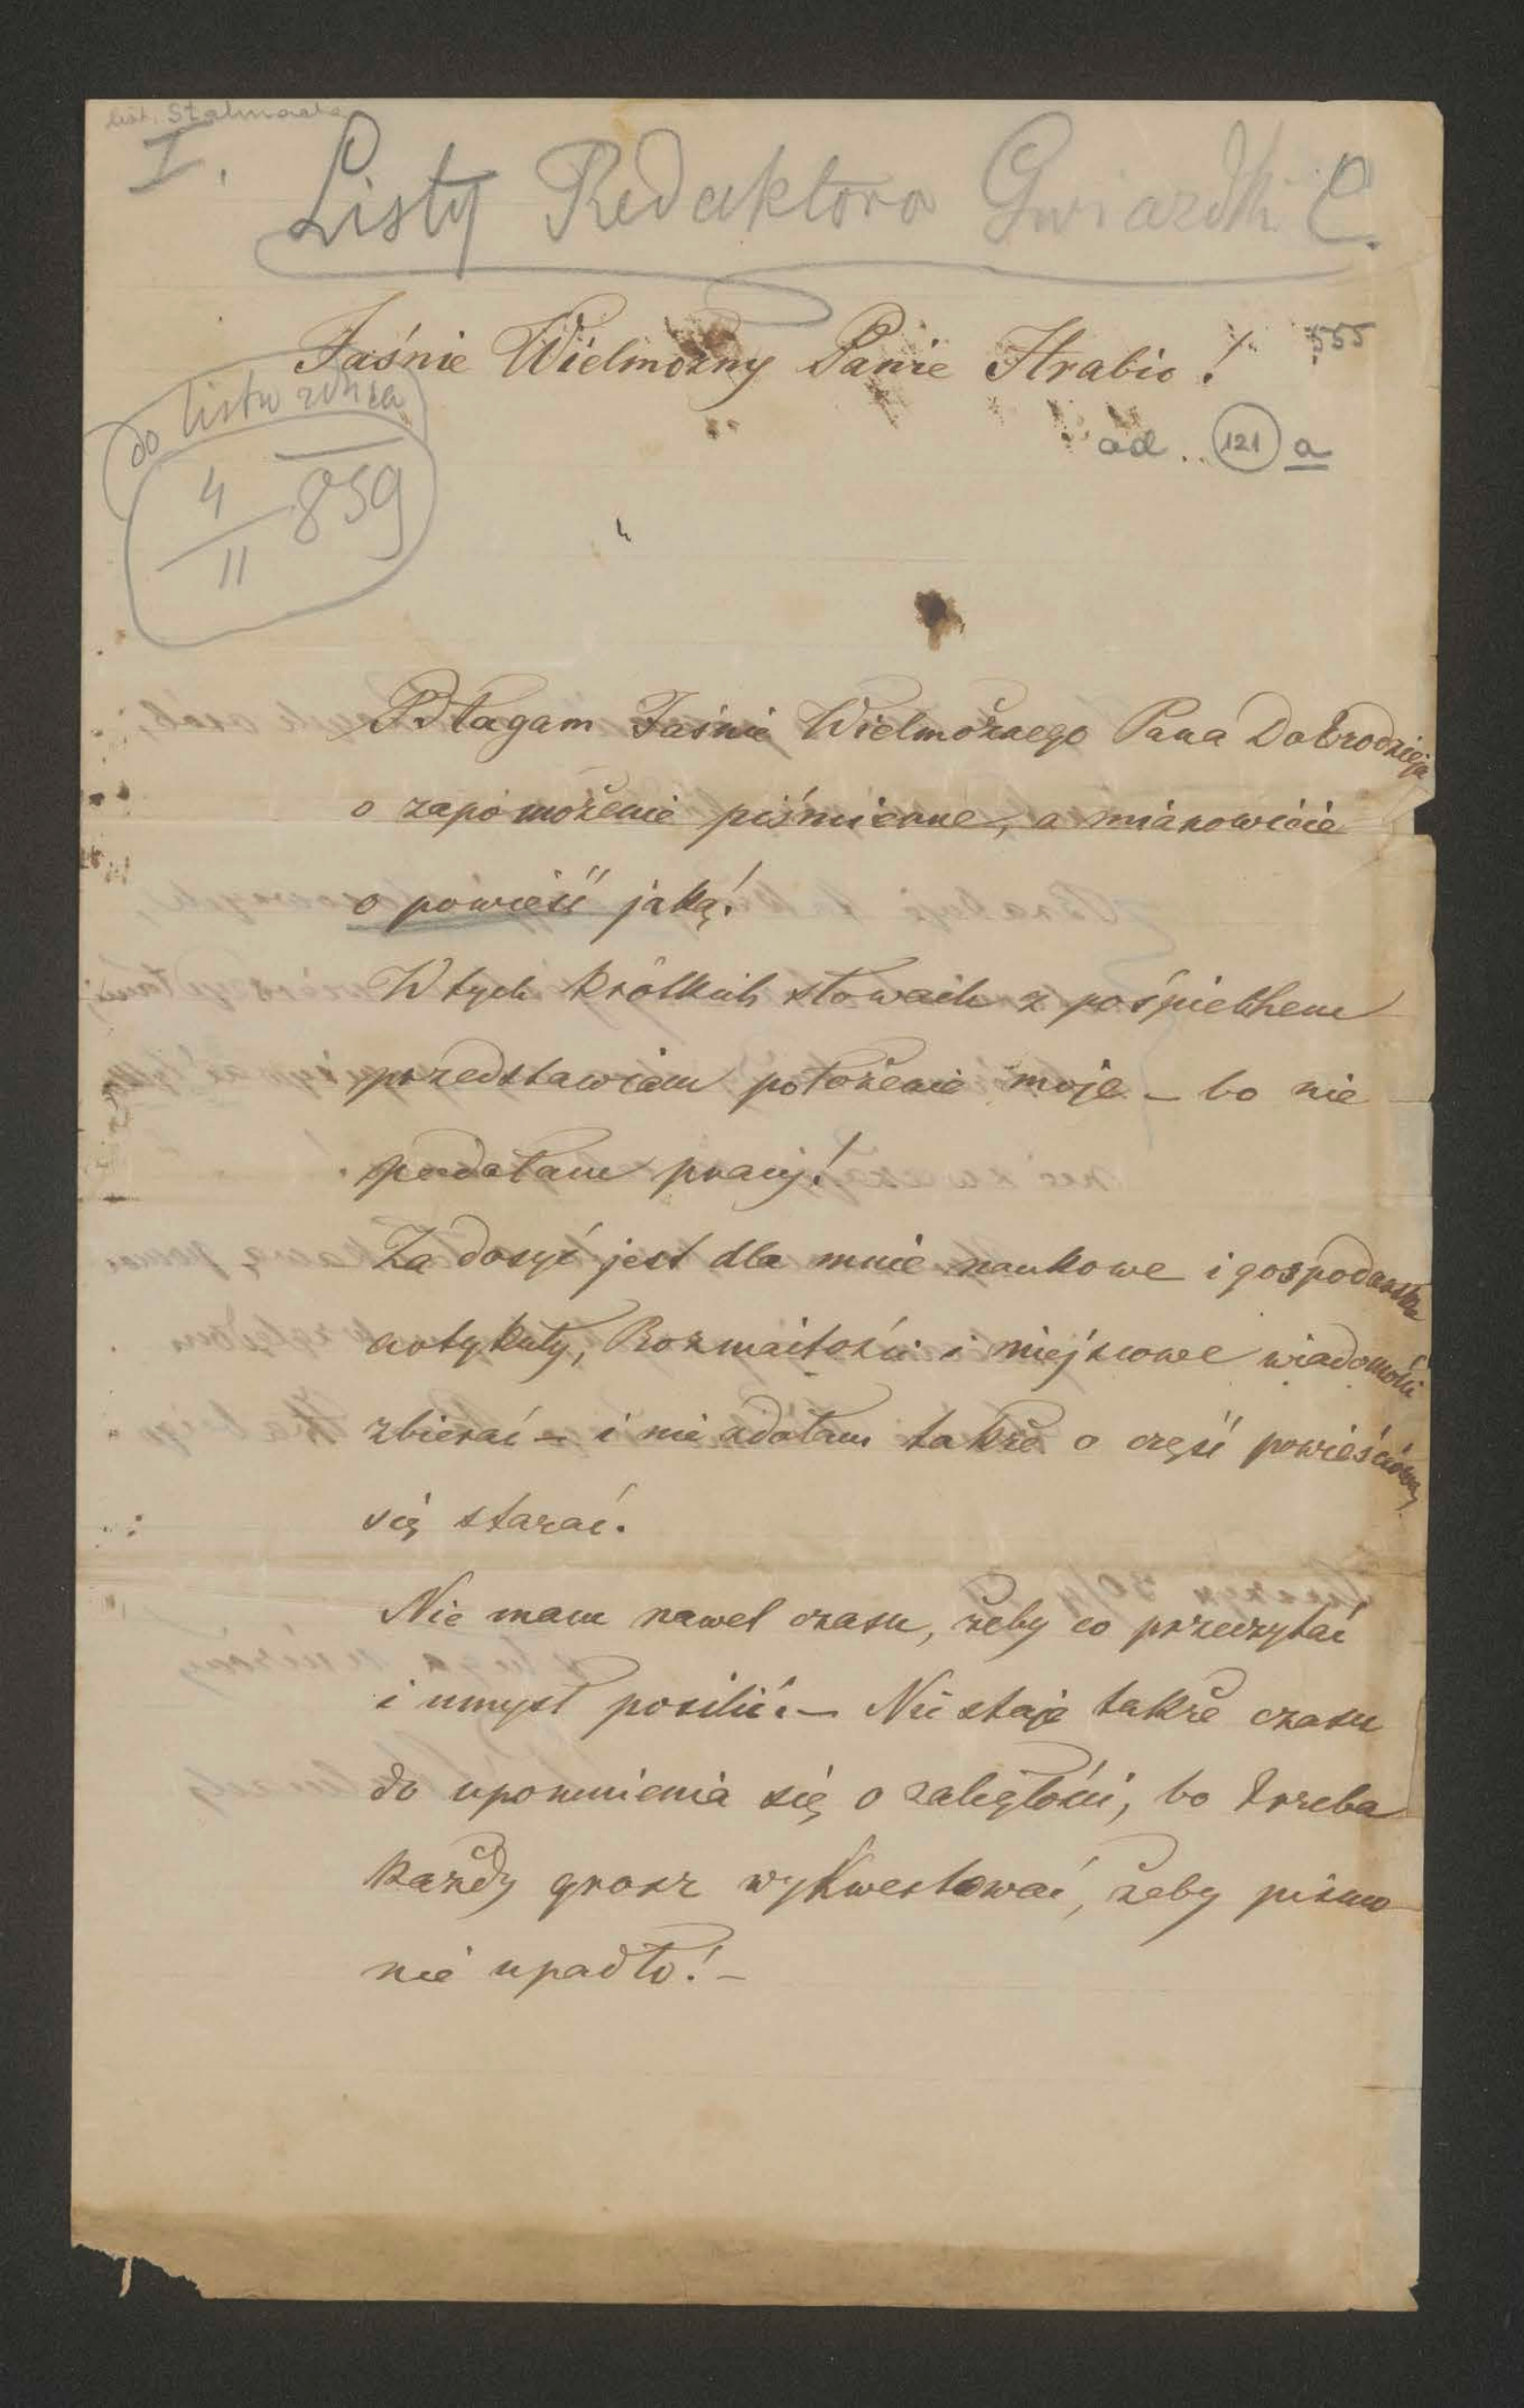 list. Stalmacha
I. Listy Redaktora Gwiazdki C.
Jaśnie Wielmożny Panie Hrabio! 555
do listu z dnia
4/II 859
ad. 121 a
Błagam Jaśnie Wielmożnego Pana Dobrodzieja
o zapomożenie piśmienne, a mianowicie
o powieść jaką!
W tych krótkich słowach z pośpiechem
przedstawiam położenie moje – bo nie
podołam pracy!
Za dosyć jest dla mnie naukowe i gospodarskie
artykuły, Rozmaitości i miejscowe wiadomości
zbierać – i nie zdołam także o część powieściową
się starać.
Nie mam nawet czasu, żeby co przeczytać
i umysł posilić. – Nie staje także czasu
do upomnienia się o zaległości, bo trzeba
każdy grosz wykwestować, żeby pismo
nie upadło! –